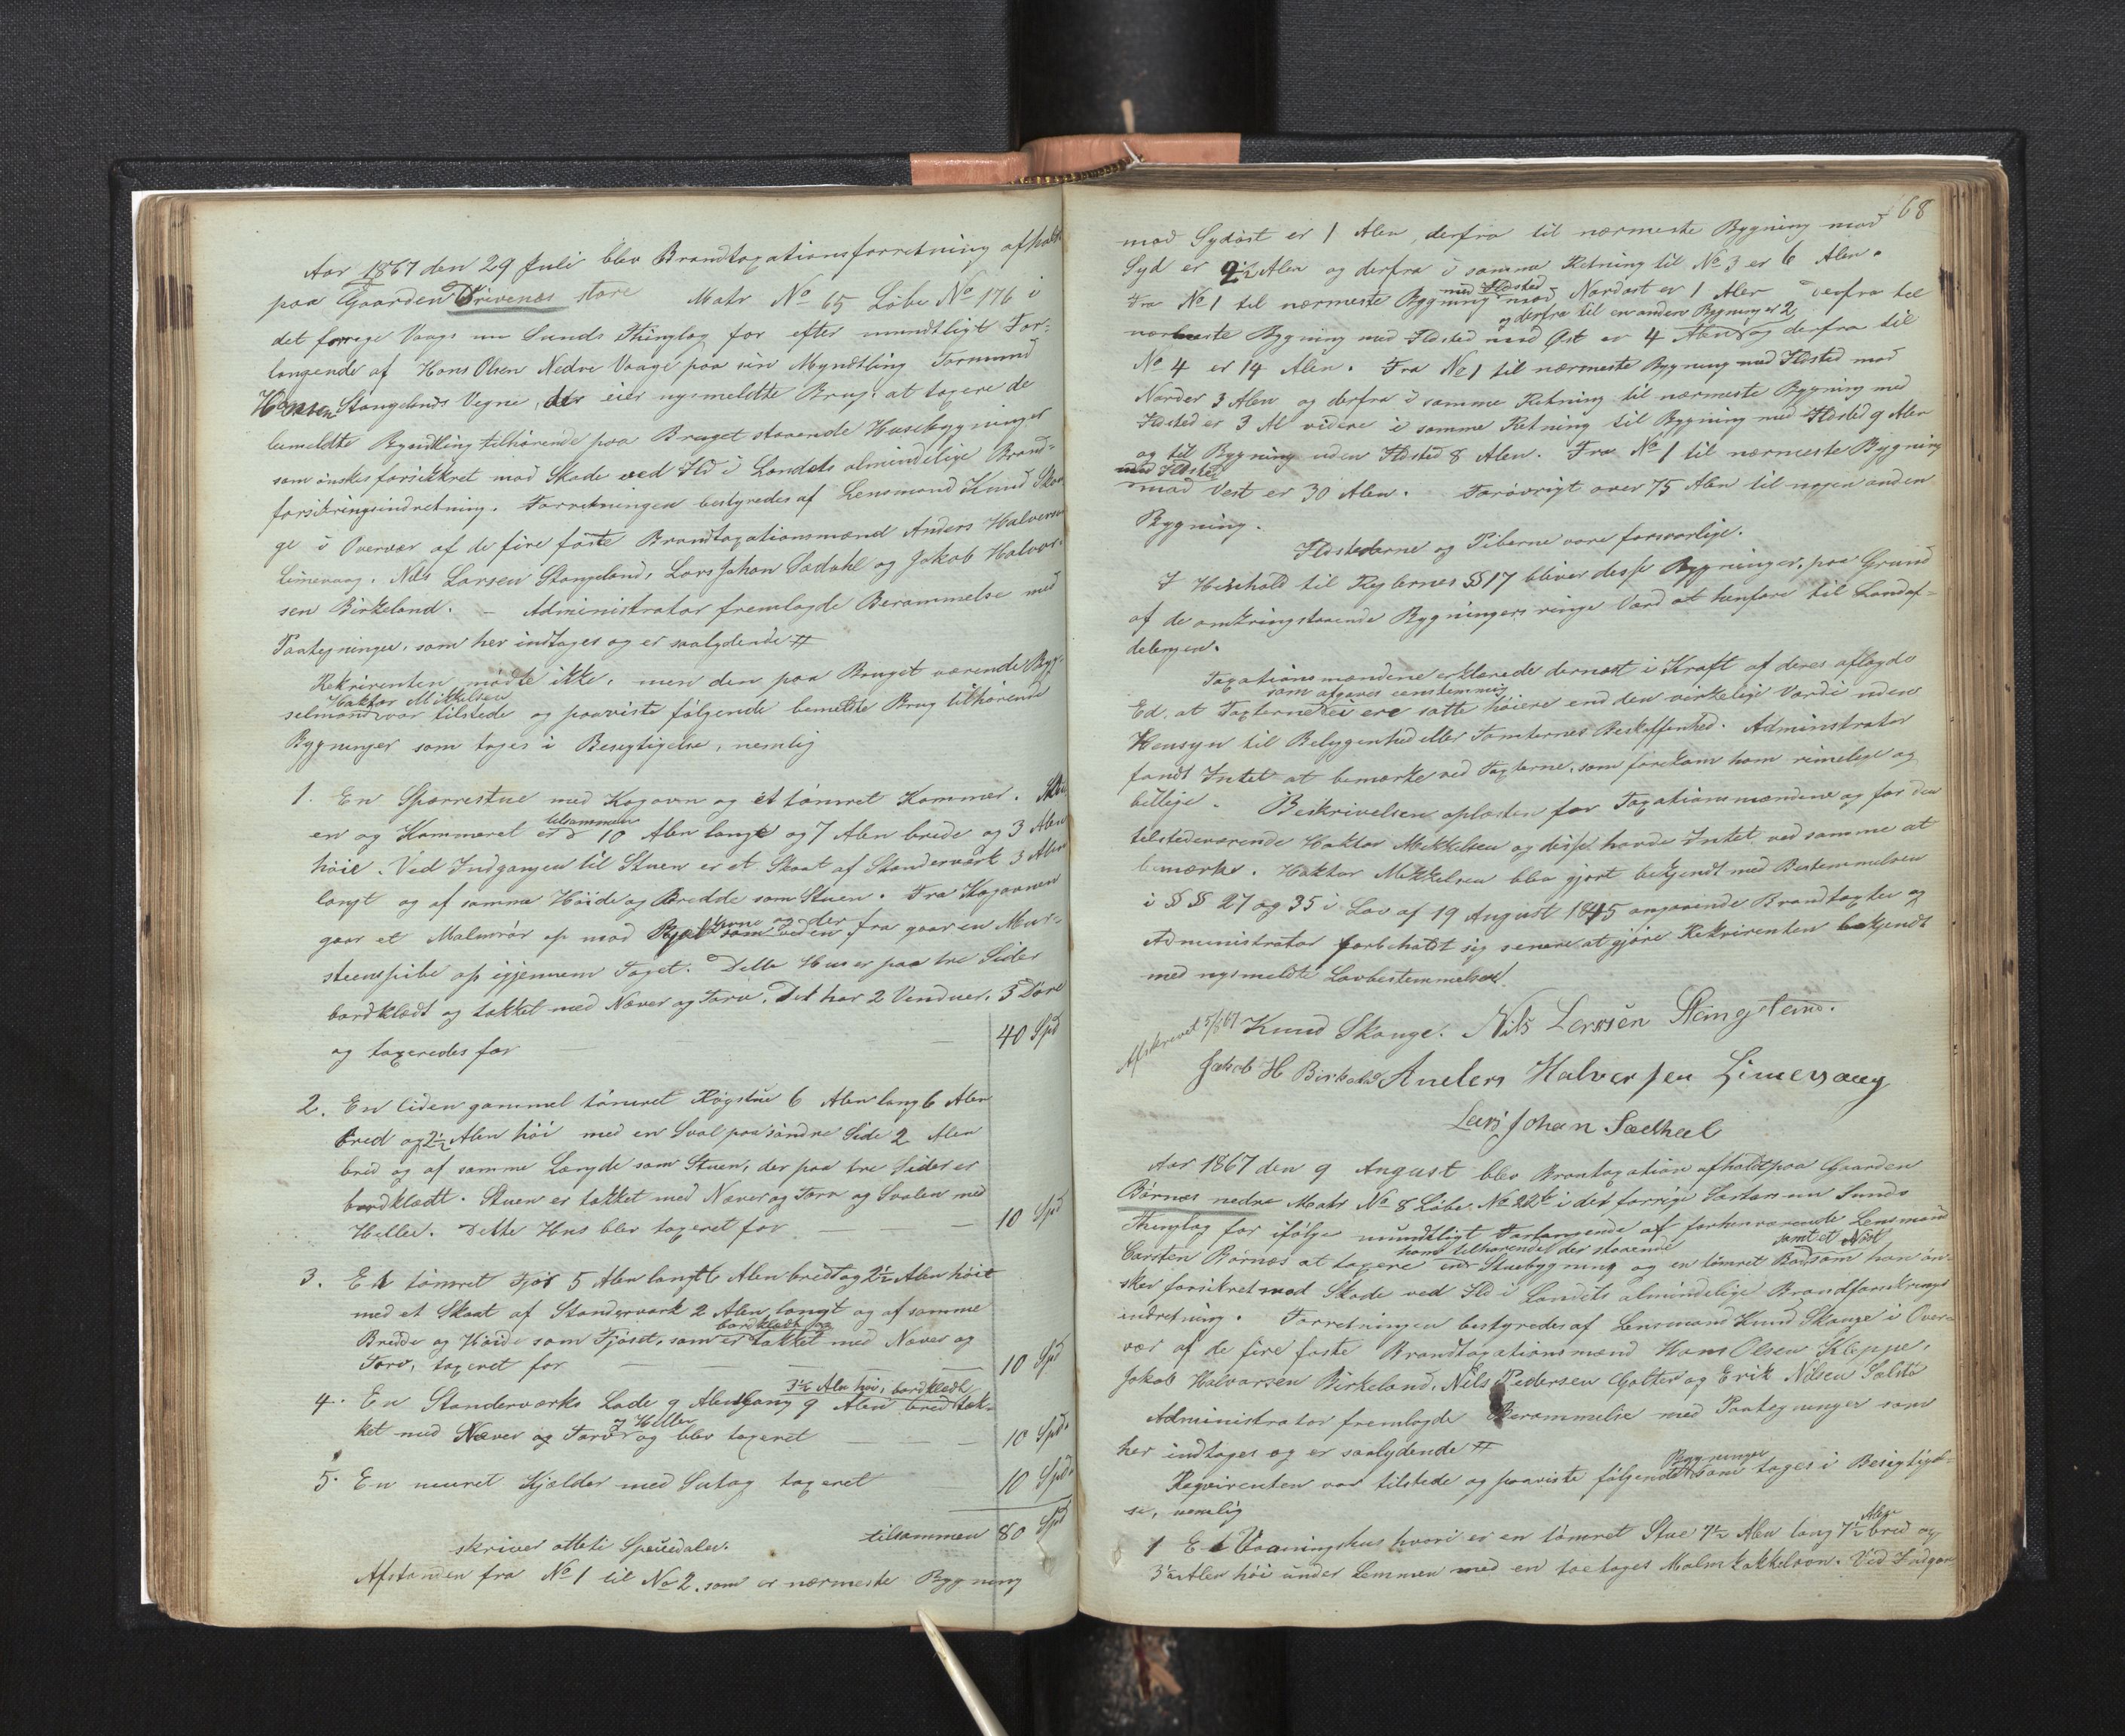 Aar 1867 den 29 Juli blev Brandtaxationsforretning afholdt
paa Gaarden Drivenes store Matr No 65 Løbe No 176 i
det forrige Vaags nu Sunds Thinglag for efter mundtligt For-
langende af Hans Olsen Nedre Vaage paa sin Myndtling Tormund
Hansen Stangelands Vegne, der eier nysmeldte Brug: at taxere de
bemeldte Myndtling tilhørende paa Bruget staaende Huusebygninger
som ønskes forsikkret mod Skade ved Ild i Landets almindelige Brand-
forsikringsindretning. Forretningen bestyredes af Lensmand Knud Skou-
ge i Overvær af de fire faste Brandtaxationsmænd Anders Halversen
Limevaag, Nils Larsen Stangeland, Lars Johan Sædahl og Jakob Halvor-
sen Birkeland. – Administrator fremlagde Berammelse med
Paategninger, som her indtages og er saalydende #
Rekvirenten mødte ikke, men den paa Bruget værende Byg-
Haktor Mikkelsen
selmand var tilstede og paaviste følgende bemeldte Brug tilhørende
Bygninger som toges i Besigtigelse, nemlig
1. En Sperrestue med Kogovn og et tømret Kammer. Stu-
tilsammen
en og Kammeret er 10 Alen lange og 7 Alen brede og 3 Alen
høie. Ved Indgangen til Stuen er et Skaat af Standerværk 3 Alen
langt og af samme Høide og Bredde som Stuen. Fra Kogovnen
gaar et Malmrør op mod Bjelkerne og derfra gaar en Mur-
steenspibe op igjennem Taget. Dette Hus er paa tre Sider
bordklædt og takket med Næver og Torv. Det har 2 Vinduer, 3 Døre
og taxeredes for — — 40 Spd
2. En liden gammel tømret Røgstue 6 Alen lang 6 Alen
bred og 2½ Alen høi med en Sval paa søndre Side 2 Alen
bred og af samme Længde som Stuen, der paa tre Sider er
bordklædt. Stuen er takket med Næver og Torv og Svalen med
Heller. Dette Hus blev taxeret for — — 10 Spd
3. Et tømret Fjøs 5 Alen langt 6 Alen bredt og 2½ Alen høit
med et Skaat af Standerværk 2 Alen langt og af samme
bordklædt og
Bredde og Høide som Fjøset, som er takket med Næver og
Torv, taxeret for — — — 10 Spd
3½ Alen høi, bordklædt
4. En Standerværks Lade 9 Alen lang 9 Alen bred tæk-
og Heller
ket med Næver og Torv og blev taxeret — — — 10 Spd.
5. En muret Kjælder med Sutag taxeret 10 Spd.
tilsammen 80 Spd
skriver otteti Speciedaler.
Afstanden fra No 1 til No 2, som er nærmeste Bygning
68
mod Sydøst er 1 Alen, derfra til nærmeste Bygning mod
Syd er 2½ Alen og derfra i samme Retning til No 3 er 6 Alen.
med Ildsted
Fra No 1 til nærmeste Bygning mod Nordost er 1 Alen derfra til
og derfra til en anden Bygning er 2
nærmeste Bygning med Ildsted mod Øst er 4 Alen og derfra til
No 4 er 14 Alen. Fra No 1 til nærmeste Bygning med Ildsted mod
Norden 3 Alen og derfra i samme Retning til nærmeste Bygning med
Ildsted er 3 Al videre i samme Retning til Bygning med Ildsted 9 Alen
og til Bygning uden Ildsted 8 Alen. Fra No 1 til nærmeste Bygning
med Ildsted
mod Vest er 30 Alen. Forøvrigt over 75 Alen til nogen anden
Bygning.
Ildstederne og Piberne vare forsvarlige.
I Henhold til Reglernes §§ 17 bliver disse Bygninger, paa Grund
af de omkringstaaende Bygningers ringe Værd at henføre til Landaf-
delingen.
Taxationsmændene erklærede dernæst i Kraft af deres aflagde
som afgaves eenstemmig
Ed, at Taxterne ei ere satte høiere end den virkelige Værdi uden
Hensyn til Belygenhed eller Tomternes Beskaffenhed. Adminstrator
fandt Intet at bemærke ved Taxterne, som forekom ham rimelige og
billige. Beskrivelsen oplæstes for Taxationsmændene og for den
tilstedeværende Haktor Mikkelsen og disse havde Intet ved samme at
bemærke. Haktor Mikkelsen blev gjort bekjendt med Bestemmelsen
i §§ 27 og 35 i Lov af 19 August 1845 angaaende Brandtaxter og
Administrator forbeholdt sig senere at gjøre Rekvirenten bekjendt
med nysmeldte Lovbestemmelser.
Afskrevet 5/8 67 Knud Skouge. Nils Larssen Stangeland.
Jakob H Birkeland Anders Halversen Limevaag
Lars Johan Sædhal
Aar 1867 den 9 August blev Brantaxation afholdt paa Gaarden
Børnæs nedre Matr No 8 Løbe No 22b i det forrige Sartors nu Sunds
Thinglag for ifølge mundtligt Forlangende af forhenværende Lensmand
ham tilhørende der staaende samt et Nøst
Carsten Børnæs at taxere en Stuebygning og en tømret Bod som han øn-
sker forsikret mod Skade ved Ild i Landets almindelige Brandforsikrings
indretning. Forretningen bestyredes af Lensmand Knud Skouge i Over-
vær af de fire faste Brandtaxationsmænd Hans Olsen Kleppe,
Jakob Halvorsen Birkeland, Nils Pedersen Golten og Erik Nilsen Solstø
Administrator fremlagde Berammelse med Paategninger som
her indtages og er saalydende #
Bygninger
Reqvirenten var tilstede og paaviste følgende som toges i Besigtigel-
se, nemlig
Alen
1 Et Vaaningshus hvori er en tømret Stue 7½ Alen lang 7½ bred og
3½ Alen høi under Lemmen med en toetages Malm kakkelovn. Ved Indgan-